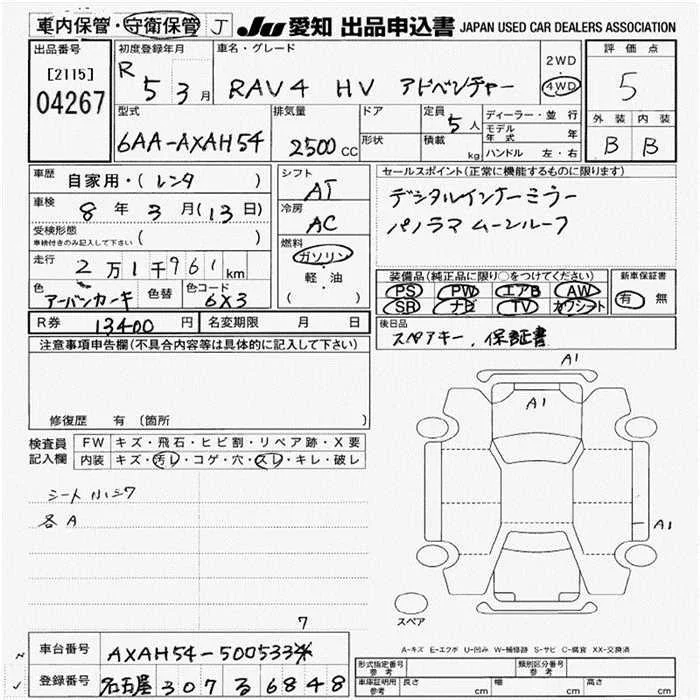 車内保管・守衛保管 J JU 愛知 出品申込書 JAPAN USED CAR DEALERS ASSOCIATION
出品番号 初度登録年月 車名・グレード 評価点
[2115] R 5 3月 RAV4 HV アドベンチャー 2WD 4WD 5
04267
型式 排気量 ドア 定員 5人 ディーラー・並行 外装 内装
6AA-AXAH54 2500cc 形状 積載 kg モデル年式 年 B B
ハンドル 左・右
車歴 自家用・(レンタ ) シフト AT セールスポイント(正常に機能するものに限ります)
車検 8年3月(13日) 冷房 AC デジタルインナーミラー
受検形態 車検付きのみ記入して下さい ( ) パノラマムーンルーフ
走行 2万1千961km 燃料 ガソリン 軽・油 ( )
装備品(純正品に限り○をつけてください) 新車保証書
色 アーバンカーキ 色替 色コード 6X3 PS PW エアB AW 有 無
SR ナビ TV カワシート
R券 13400円 名変期限 月 日 後日品
スペアキー、保証書
注意事項申告欄(不具合内容等は具体的に記入して下さい)
A1
A1
修復歴 有 (箇所 )
検査員記入欄 FW キズ・飛石・ヒビ割・リペア跡・X要
内装 キズ・汚レ・コゲ・穴・スレ・キレ・破レ
シート
各A
A1
7
スペア
A-キズ E-エクボ U-凹み W-補修跡 S-サビ C-腐食 XX-交換済
車台番号 AXAH54-500533※
形式指定番号 参考 類別区分番号 参考
登録番号 名古屋 307 る 6848
車庫証明用 参考 長さ cm 幅 cm 高さ cm